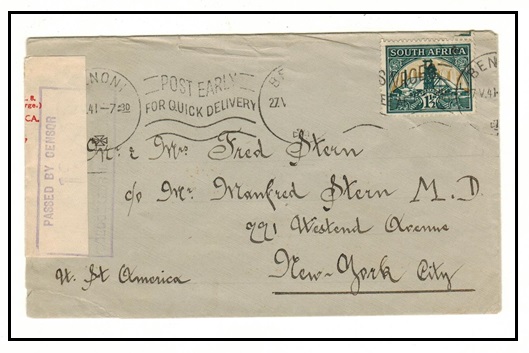 SOUTH AFRICA
1½
BENONI
.41-7
POST EARLY
FOR QUICK DELIVERY
27.V
BEN
7.V.41
PASSED BY CENSOR
Mr. & Mrs. Fred Stern
c/o Mr. Manfred Stern M.D.
991 Westend Avenue
New-York City
U. St America